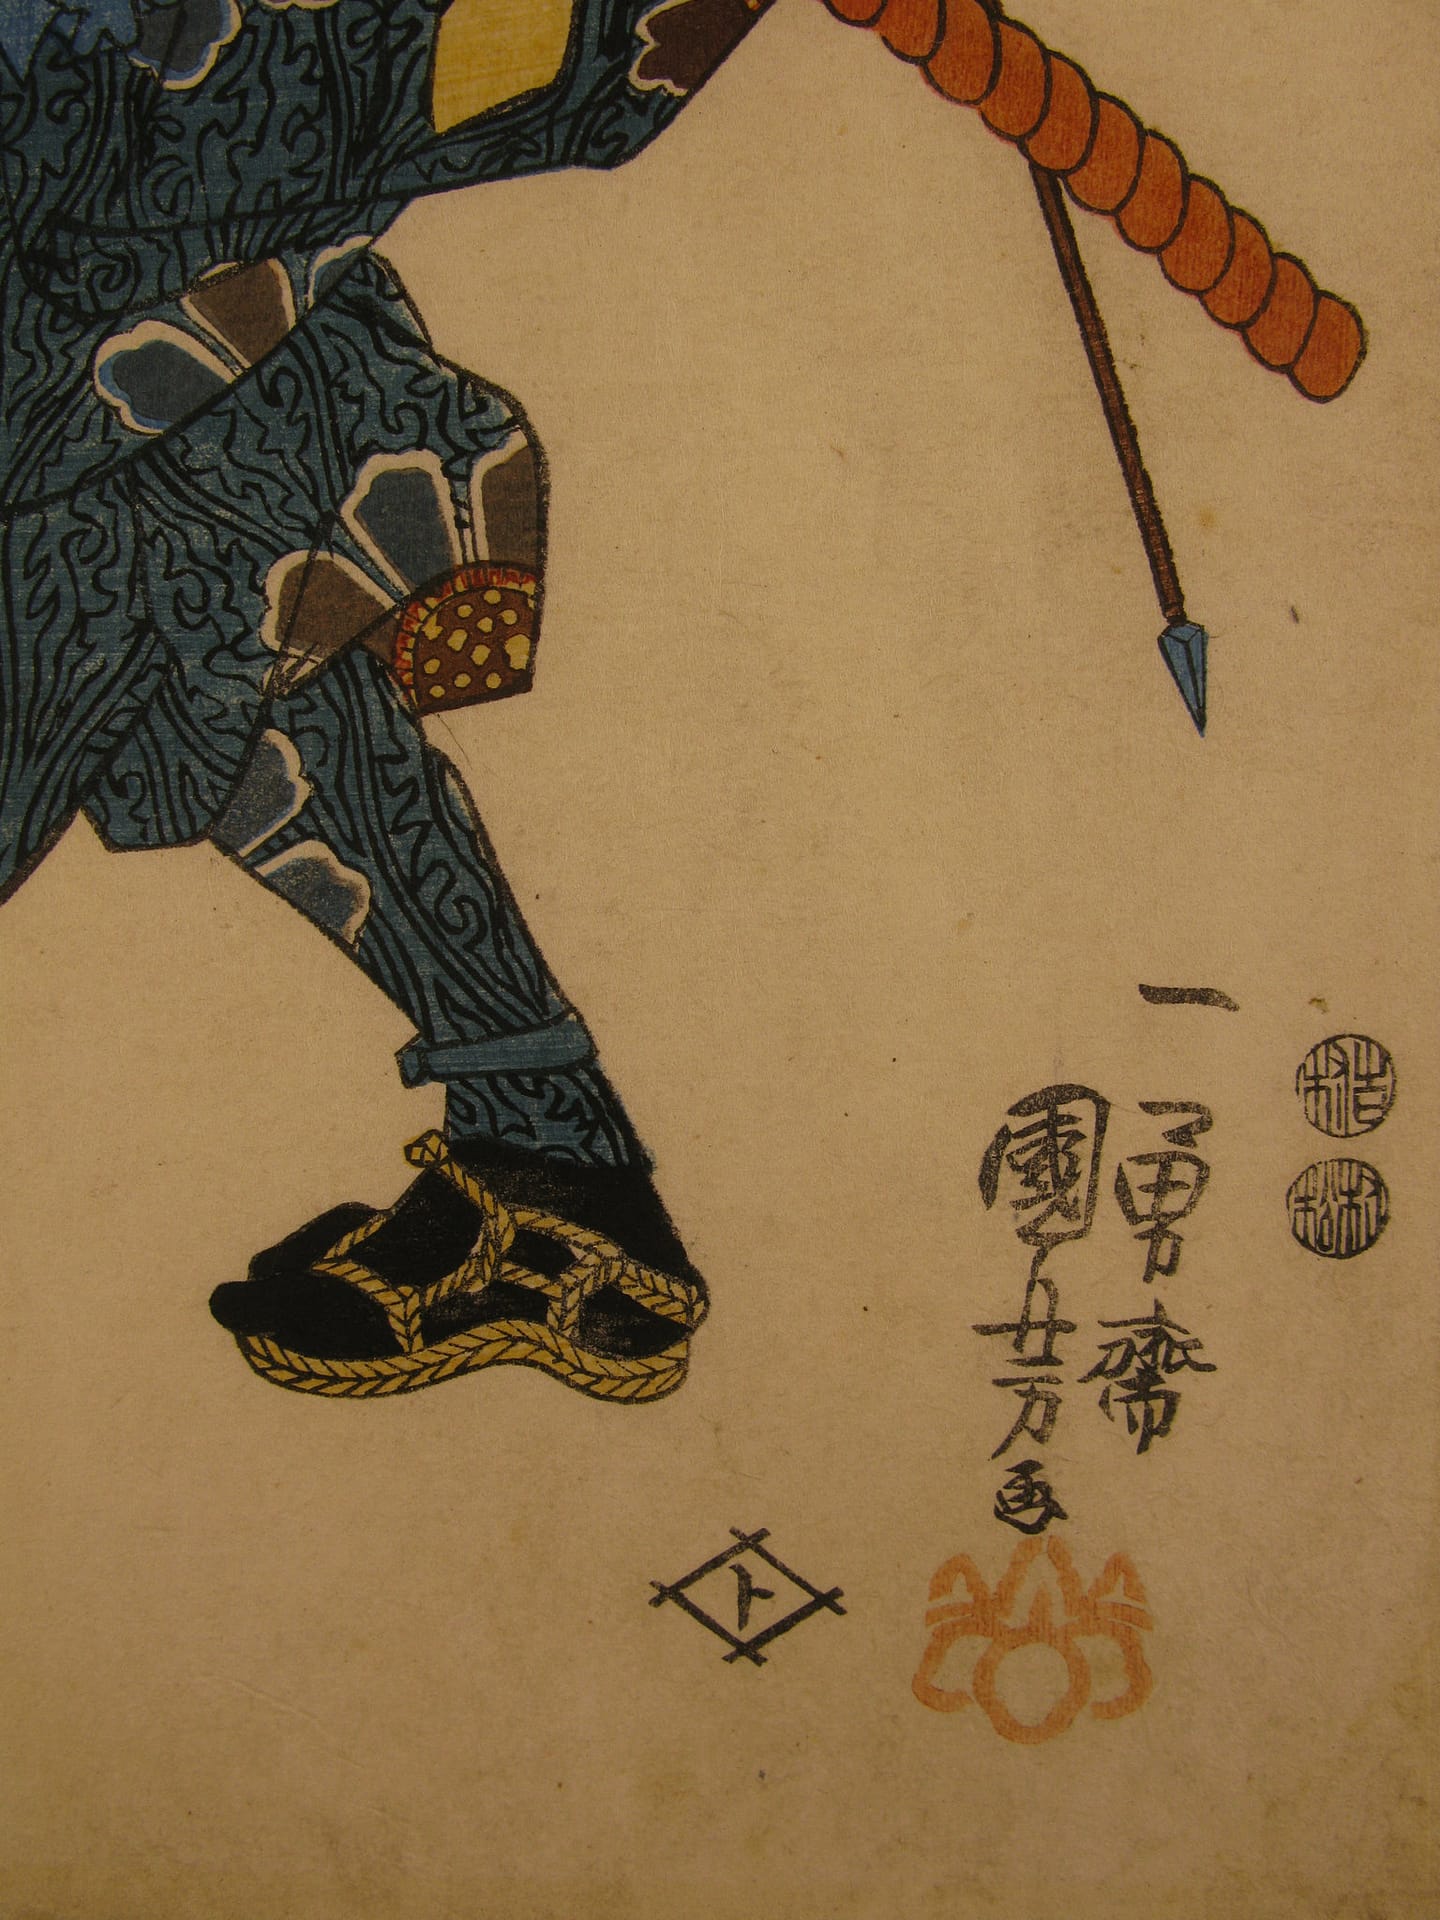 一勇齋
國芳画
ト